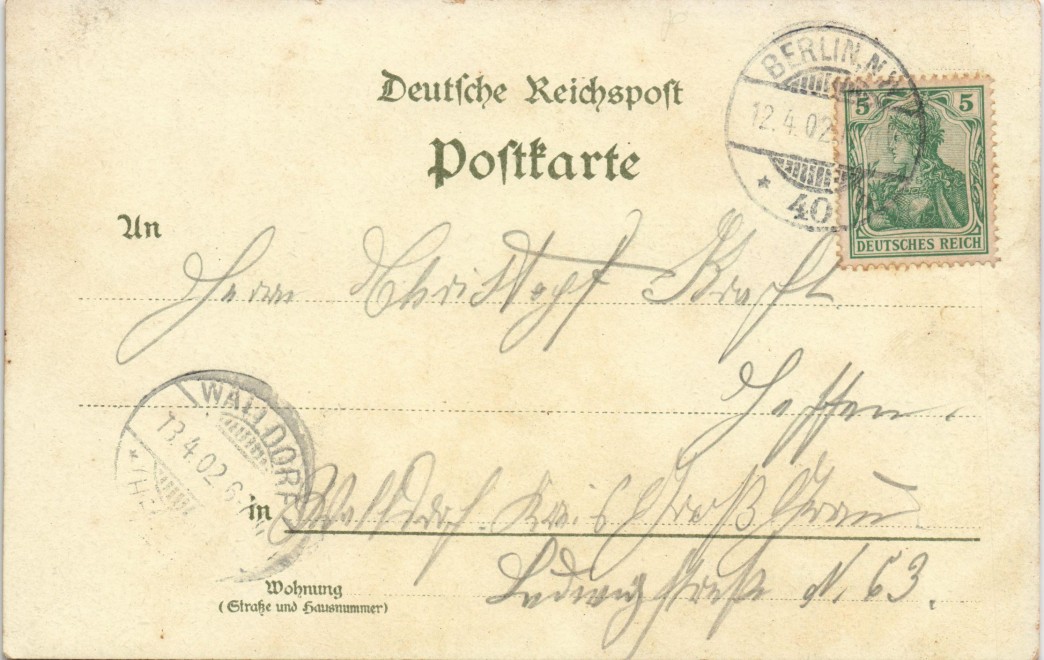 Deutsche Reichspost
Postkarte
BERLIN, N.W.
12.4.02
* 40
5 5
DEUTSCHES REICH
An
Herrn Christopf Kraft
Hessen.
WALLDORF
13.4.02 6-
in Walldorf. Kreis Groß Gerau
Ludwigstraße N. 63.
Wohnung
(Straße und Hausnummer)